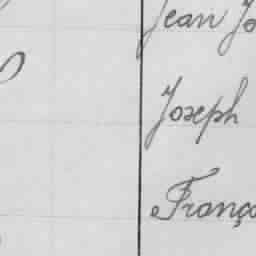 Jean Jo
Joseph
Franço